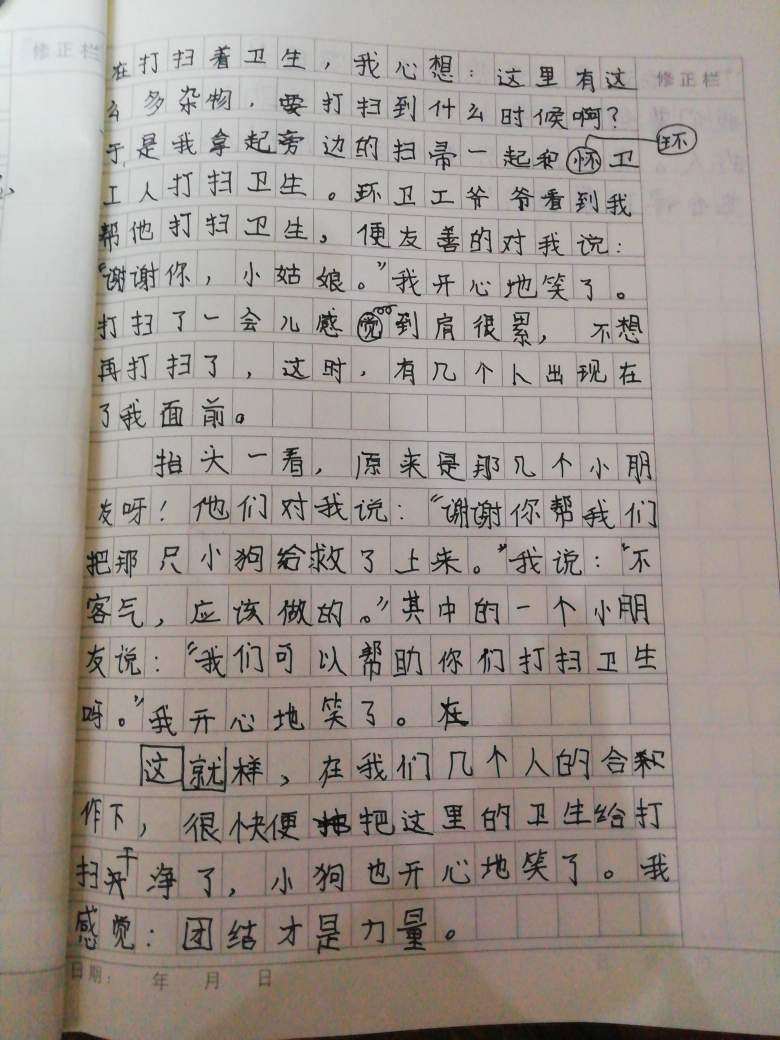 修正栏
修正栏
在打扫着卫生，我心想：这里有这
么多杂物，要打扫到什么时候啊？
于是我拿起旁边的扫帚一起和怀卫
环
工人打扫卫生。环卫工爷爷看到我
帮他打扫卫生，便友善的对我说：
“谢谢你，小姑娘。”我开心地笑了。
打扫了一会儿感觉到肩很累，不想
再打扫了，这时，有几个人出现在
了我面前。
抬头一看，原来是那几个小朋
友呀！他们对我说：“谢谢你帮我们
把那只小狗给救了上来。”我说：“不
客气，应该做的。”其中的一个小朋
友说：“我们可以帮助你们打扫卫生
呀。”我开心地笑了。在
这就样，在我们几个人的合和
作下，很快便把这里的卫生给打
扫干净了，小狗也开心地笑了。我
感觉：团结才是力量。
日期： 年 月 日